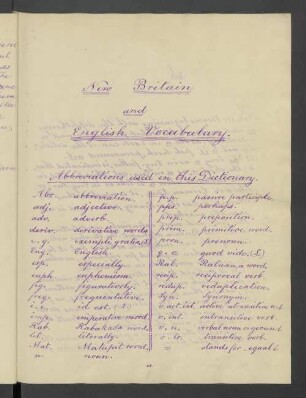 New Britain
and
English Vocabulary.
Abbreviations used in this Dictionary.
Abr. abbreviation.
adj. adjective.
adv. adverb.
deriv. derivative words
e.g. exempli gratia (L)
Eng. English
esp. especially.
euph euphemism.
fig. figuratively.
freq. frequentative.
i.e. id est. (L)
imp. imperative mood.
Kab. Kabakada word.
lit. literally.
Mat. Matupit word.
n. noun.
p.p. passive participle
phs. perhaps.
prep. preposition.
prim. primitive word.
pron. pronoun.
q.v. quod vide. (L)
Ral. Raluana word.
recip. reciprocal verb.
redup. reduplication.
Syn. Synonym.
v. int. intransitive verb.
v. n. verbal noun
v. tr. transitive verb.
= stands for equal to